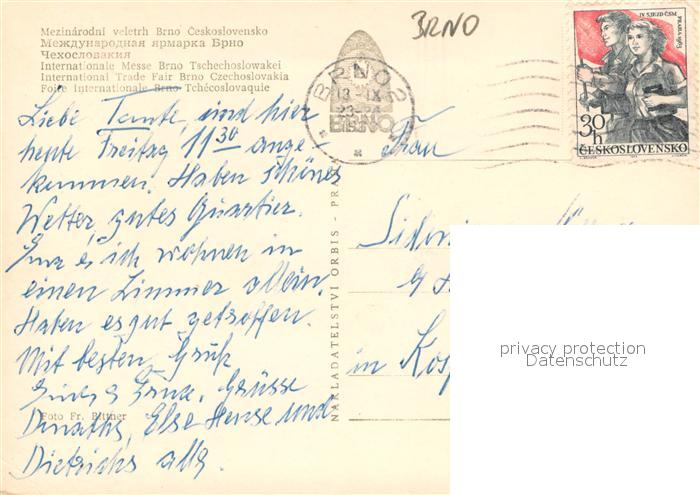 Mezinárodní veletrh Brno Československo
Международная ярмарка Брно
Чехословакия
Internationale Messe Brno Tschechoslowakei
International Trade Fair Brno Czechoslovakia
Foire Internationale Brno Tchécoslovaquie
BRNO
BRNO 2
13.-IX
BRNO
IV. SJEZD ČSM
PRAHA 1963
30h
ČESKOSLOVENSKO
Liebe Tante, sind hier
heute Freitag 11 30 ange-
kommen. Haben schönes
Wetter, gutes Quartier.
ich wohnen in
einen Zimmer allein.
Haben es gut getroffen.
Mit besten Gruß
Grüsse
Else Hense und
Dietrichs
Foto Fr. Bittner
NAKLADATELSTVÍ ORBIS - PRA
Frau
in
privacy protection
Datenschutz